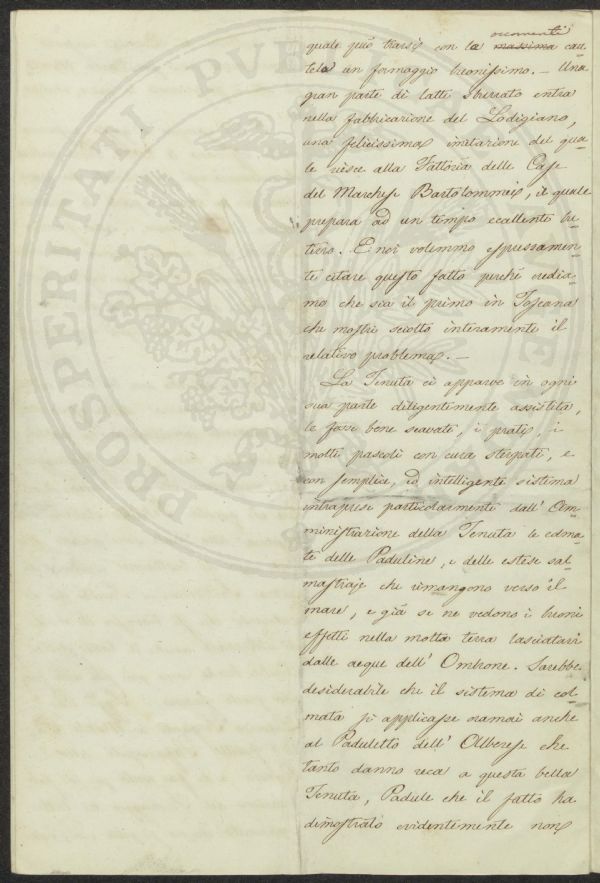 occorrenti
quale può trarsi con la massima cau-
tela un formaggio buonissimo. — Una
gran parte di latte sburrato entra
nella fabbricazione del Lodigiano,
una felicissima imitazione del qua-
le riesce alla Fattoria delle Case
del Marchese Bartolommei, il quale
prepara ad un tempo eccellente bu-
tirro. E noi volemmo espressamen-
te citare questo fatto perchè credia-
mo che sia il primo in Toscana
che mostri sciolto interamente il
relativo problema. —
La Tenuta ci apparve in ogni
sua parte diligentemente assistita,
le fosse bene scavate, i prati, i
molti pascoli con cura sterpati, e
con semplice, ed intelligente sistema
intraprese particolarmente dall' Am-
ministrazione della Tenuta le colma-
te delle Paduline, e delle estese sal-
mastraje che rimangono verso il
mare, e già se ne vedono i buoni
effetti nella molta terra lasciatavi
dalle acque dell' Ombrone. Sarebbe
desiderabile che il sistema di col-
mata si applicasse oramai anche
al Paduletto dell' Alberese che
tanto danno reca a questa bella
Tenuta, Padule che il fatto ha
dimostrato evidentemente non
PROSPERITATI PVB